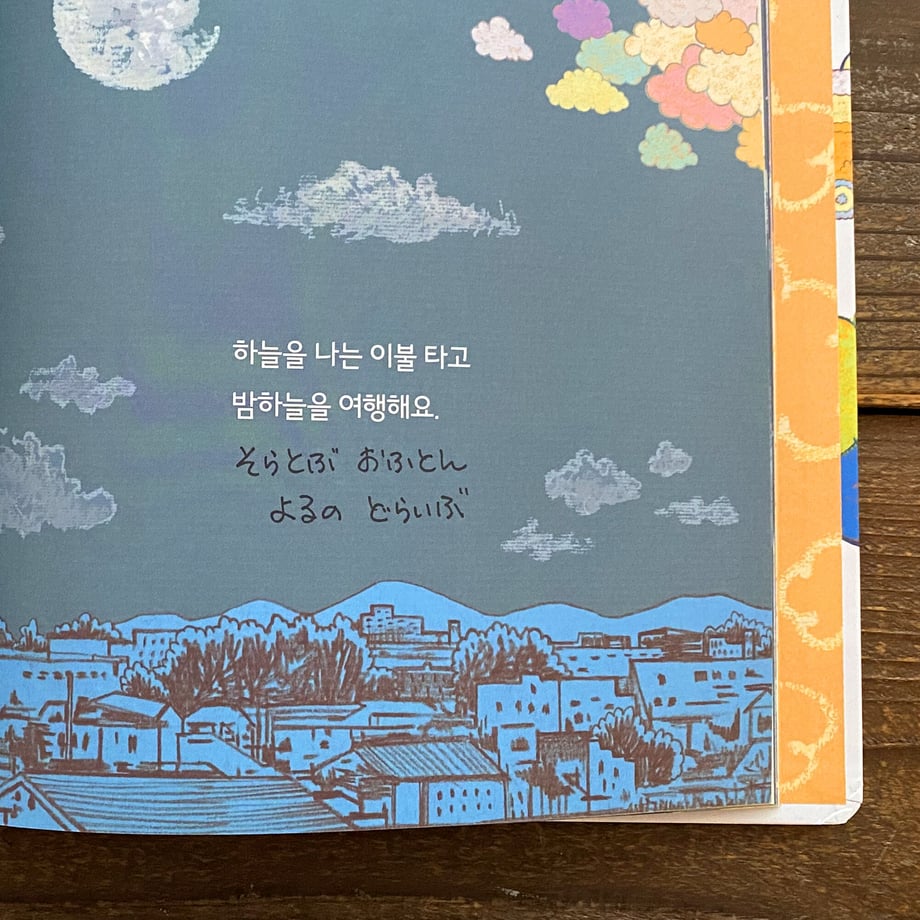 하늘을 나는 이불 타고
밤하늘을 여행해요.
そらとぶ おふとん
よるの どらいぶ